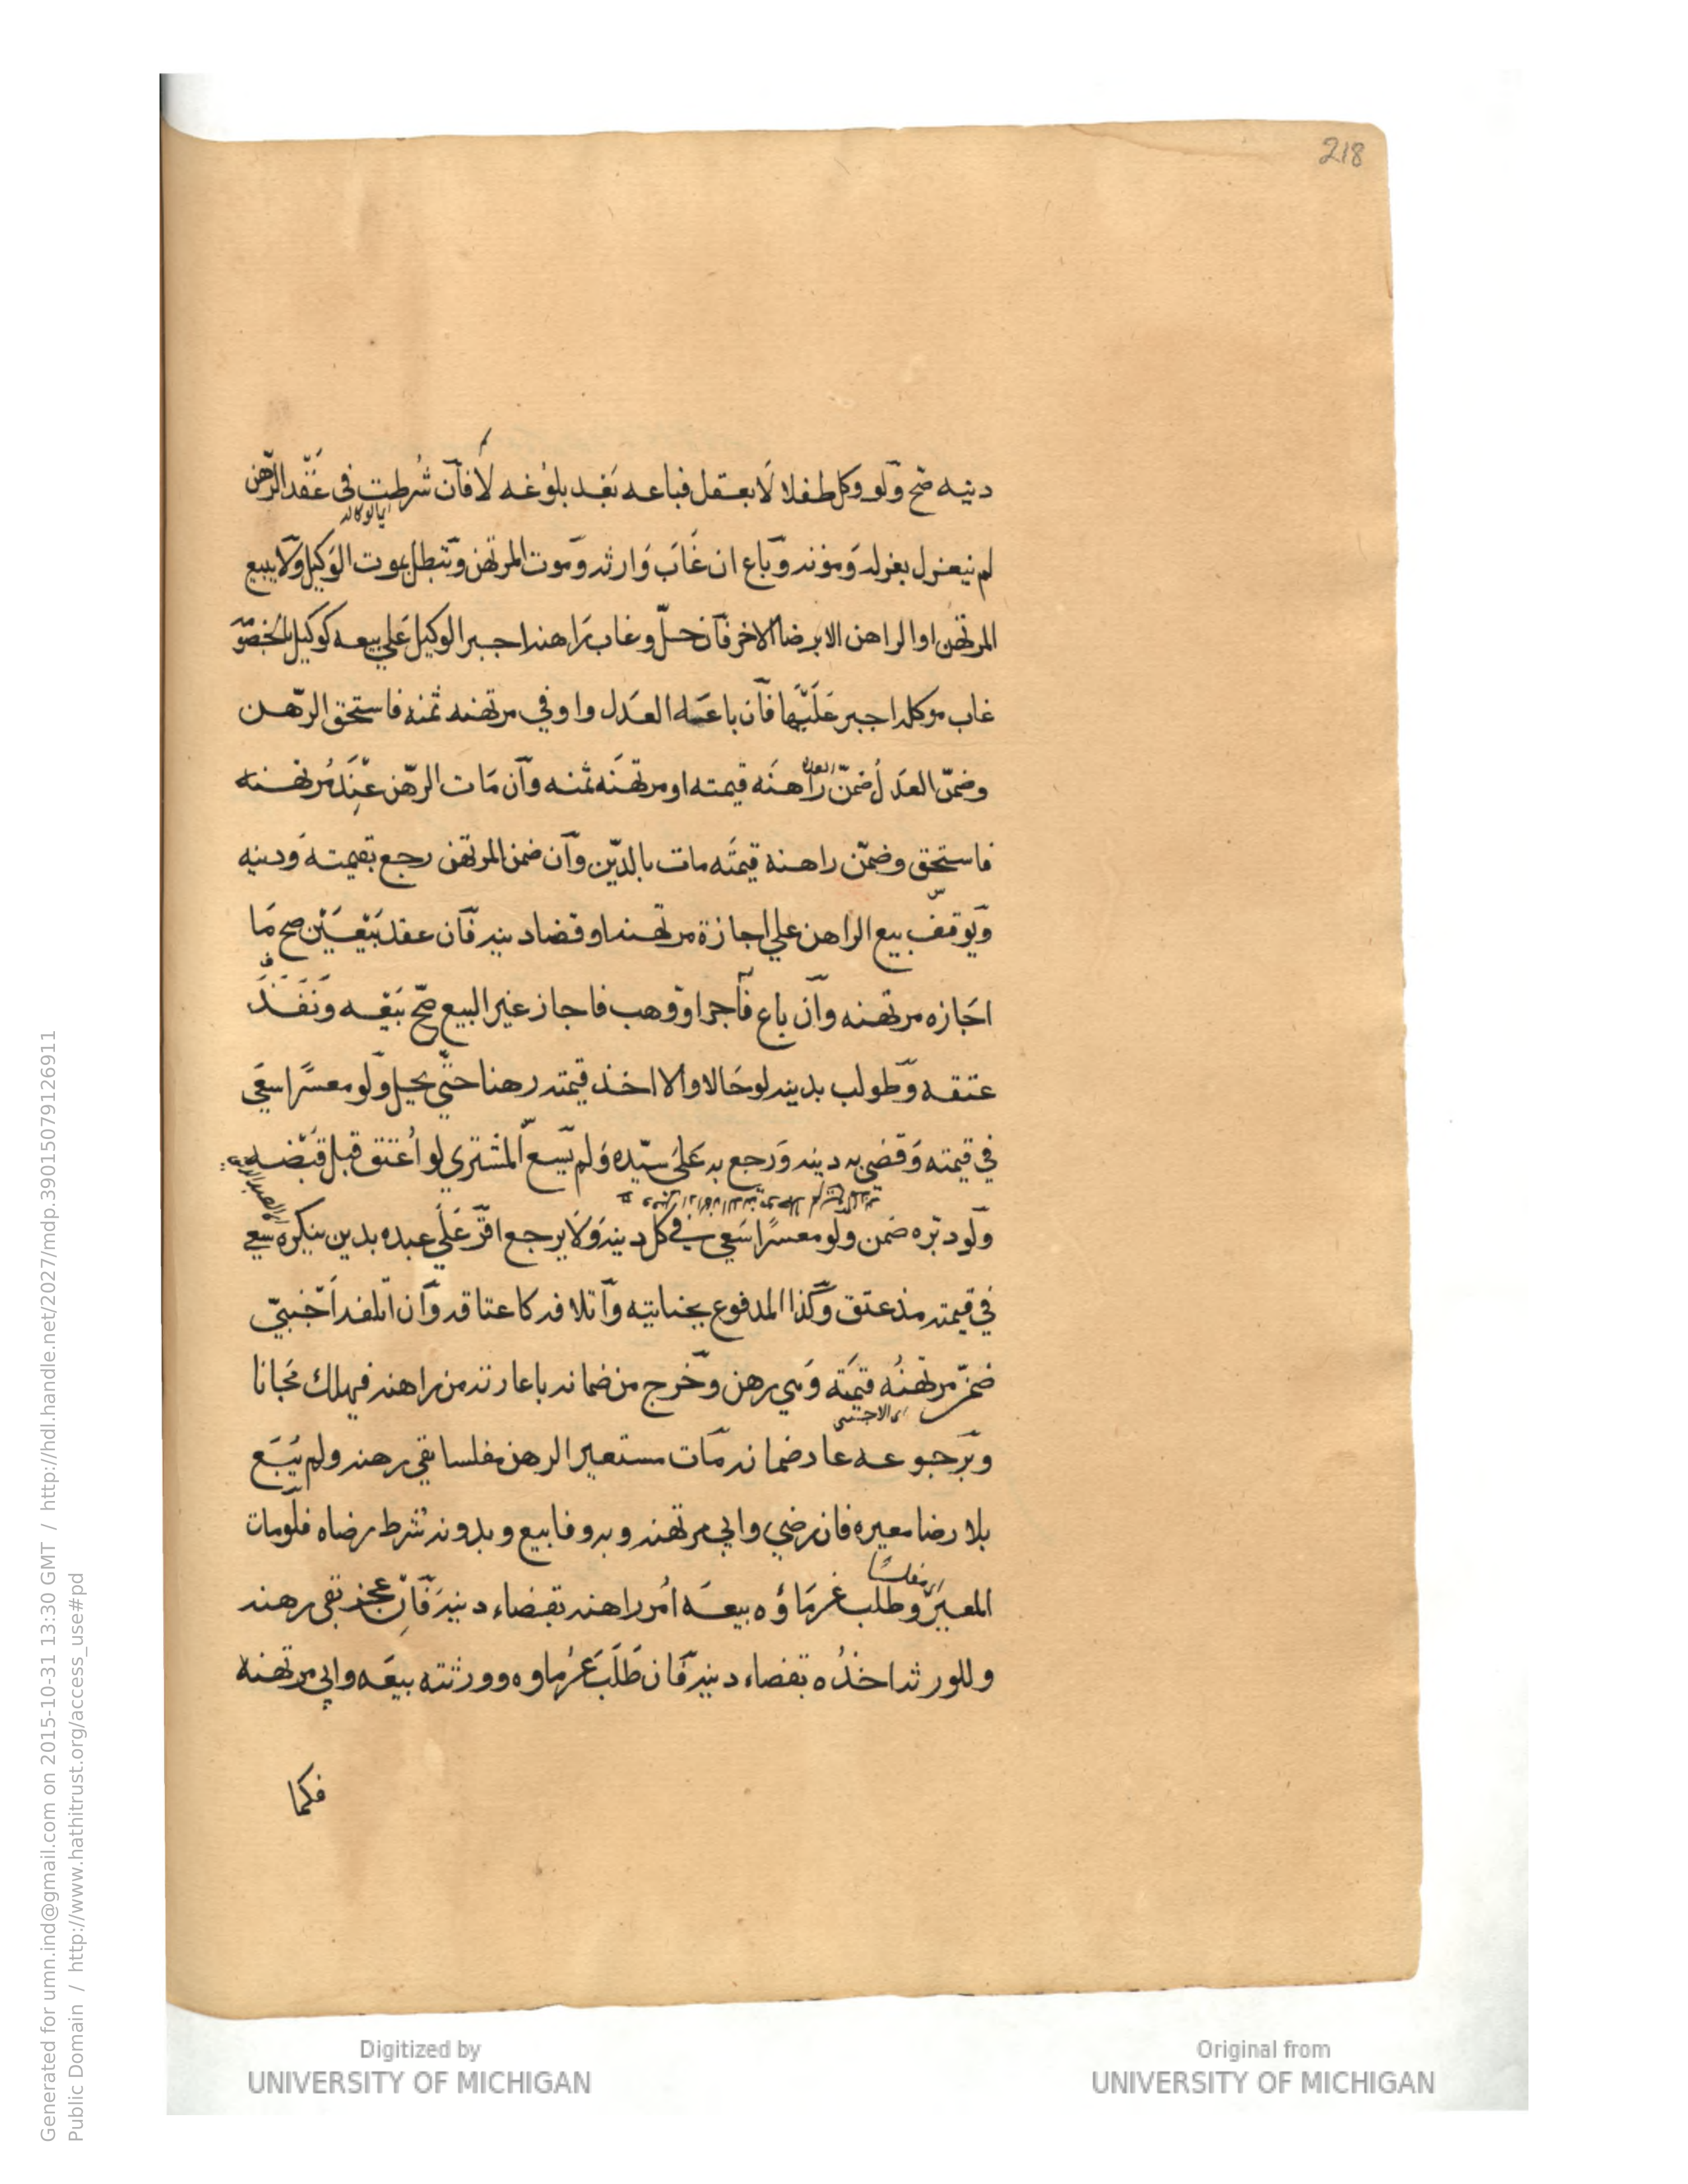 218
دينه صح ولو وكل طفلا لا يعقل فباعه بعد بلوغه لا فان شرطت في عقد الرهن
اي الوكالة
لم ينعزل بعزله وموته وباع ان غاب وارثه وموت المرتهن وتبطل بموت الوكيل ولا يبيع
المرتهن او الراهن الا برضا الاخر فان حل وغاب راهنه اجبر الوكيل على بيعه كوكيل بالخصومة
غاب موكله اجبر عليها فان باعه العدل واوفي مرتهنه ثمنه فاستحق الرهن
وضمن العدل ضمن راهنه قيمته او مرتهنه ثمنه وان مات الرهن عند مرتهنه
العدل
فاستحق وضمن راهنه قيمته مات بالدين وان ضمن المرتهن رجع بقيمته ودينه
ويوقف بيع الراهن علي اجازة مرتهنه او قضا دينه فان عقد بيعين صح ما
اجازه مرتهنه وان باع فآجر او وهب فاجاز غير البيع صح بيعه ونفذ
عتقه وطولب بدينه لو حالا والا اخذ قيمته رهنا حتى يحل ولو معسرا سعى
في قيمته وقضي به دينه ورجع به على سيده ولم يسع المشتري لو اعتق قبل قبضه
ولو دبره ضمن ولو معسرا سعى في كل دينه ولا يرجع اقر علي عبده بدين ينكره سعي
في قيمته مذ عتق وكذا المدفوع بجنايته واتلافه كاعتاقه وان اتلفه اجنبي
ضمن مرتهنه قيمته وهي رهن وخرج من ضمانه باعارته من راهنه فيهلك مجانا
اي الاجنبي
وبرجوعه عاد ضمانه مات مستعير الرهن مفلسا بقي رهنه ولم يبع
بلا رضا معيره فان رضي وابي مرتهنه وبه وفا بيع وبدونه شرط رضاه فلو مات
المعير وطلب غرماؤه بيعه امر راهنه بقضاء دينه فان عجز بقي رهنه
مفلسا
وللورثة اخذه بقضاء دينه فان طلب غرماوه وورثته بيعه وابي مرتهنه
فكما
Generated for umn.ind@gmail.com on 2015-10-31 13:30 GMT / http://hdl.handle.net/2027/mdp.39015079126911
Public Domain / http://www.hathitrust.org/access_use#pd
Digitized by
UNIVERSITY OF MICHIGAN
Original from
UNIVERSITY OF MICHIGAN